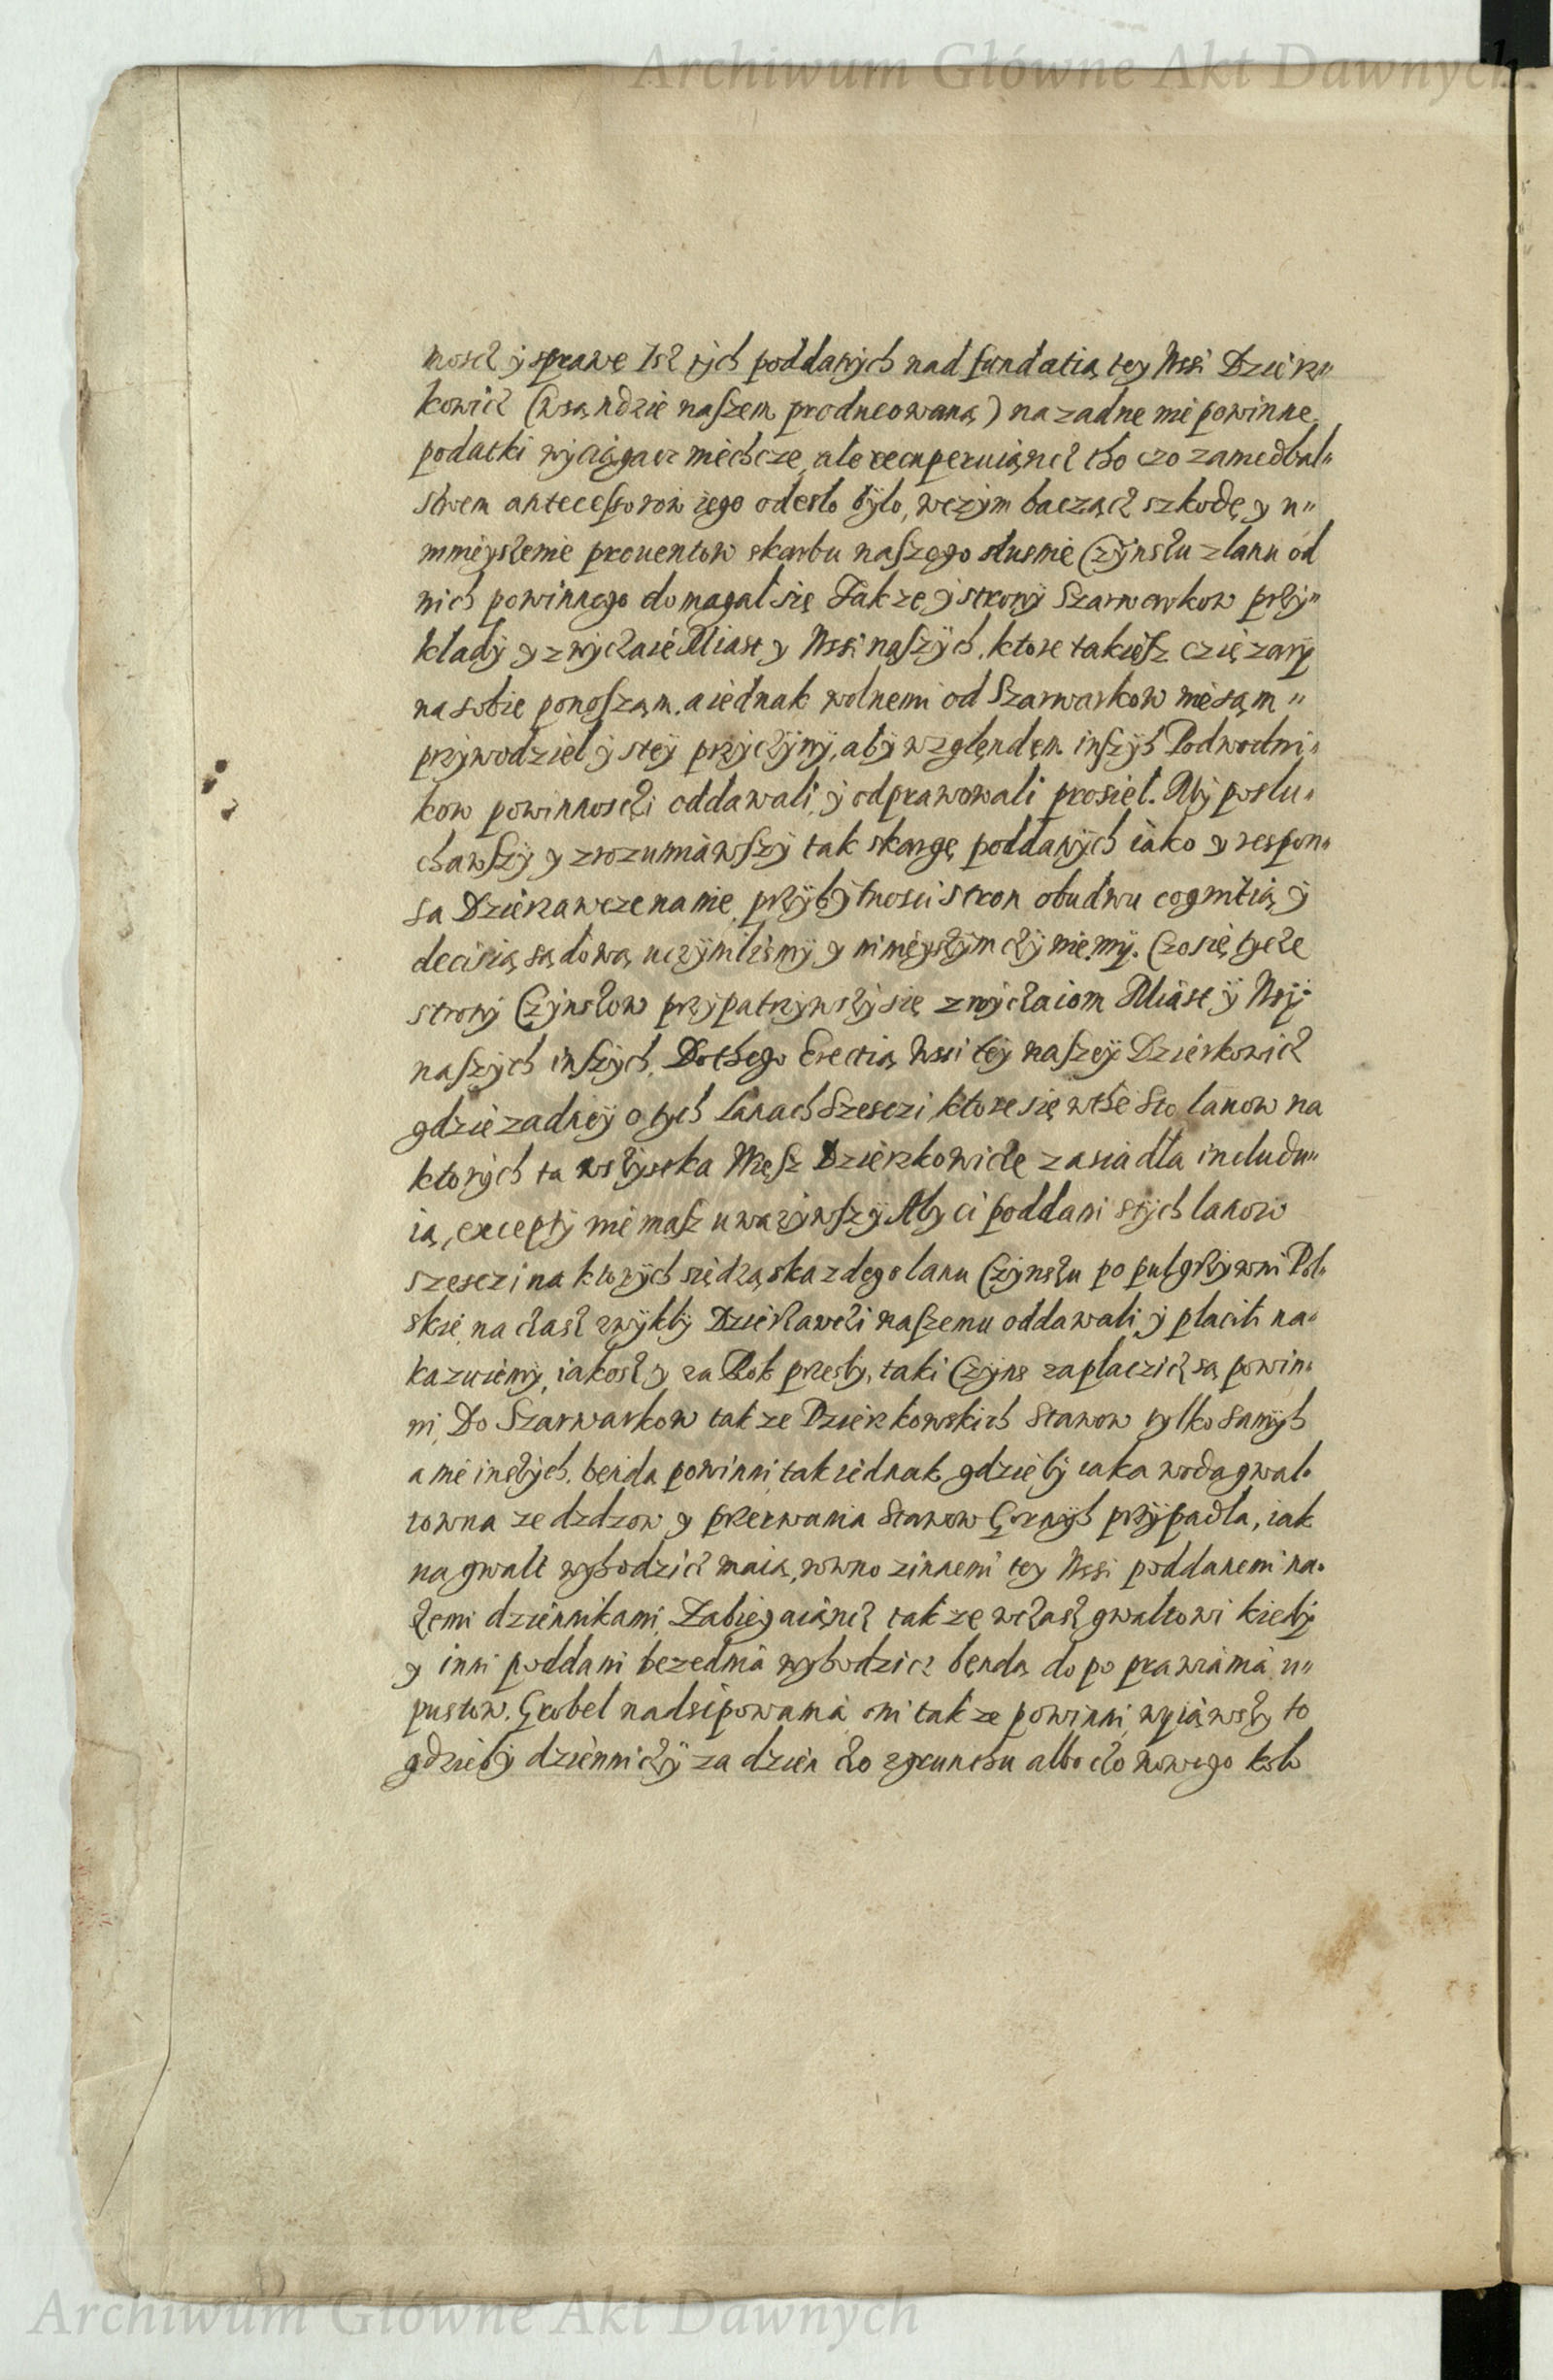 Archiwum Główne Akt Dawnych
noscz y sprawę Isz tych poddanych nad fundatią tey Wsi Dzierz„
kowicz (wsąndzie naszem producowaną) na zadne nie powinne
podatki wyciągacz niechcze, ale recuperuiąncz tho czo zaniedbal„
stwem antecessorow iego odeslo bÿlo, wczym bacząncz szkodę y u„
mnieyszenie prouentow skarbu naszego slusznie Czÿnszu z lanu od
nich powinnego domagal się Takze y strony Szarwarkow przy„
klady y zwyczaie Miast y Wsi naszÿch, ktore takiesz cziężary
na sobie ponoszam, a iednak wolnemi od Szarwarkow nie sąm„
przywodziel y stey przyczÿny, aby względem inszÿch Podwodni„
kow powinnosczi oddawali y odprawowali prosiel. My poslu„
chawszÿ y zrozumiawszÿ tak skargę poddanÿch iako y respon„
sa Dzierzawcze na nie, przy bÿtnosci stron obudwu cognitią y
decisią sądową uczynilismy y ninieyszym czyniemy. Czo się tycze
strony Czÿnszow przypatrzywszy się zwyczaiom Miast y Wsÿ
naszych inszÿch, Do thego Erectią wsi tey naszeÿ Dzierkowicz
gdzie zadney o tych Lanach szesczi, ktore się w the sto lanow na
ktorÿch ta wszystka Wiesz Dzierzkowicze zasiadla includu„
ią, excepty nie masz uwazÿwszÿ Aby ci poddani s tÿch lanow
szesczi na ktorÿch siędzą s kazdego lanu Czynszu po pul grzywni Pol„
skię na czasz zwykly Dzierzawczi naszemu oddawali y placili na„
kazuiemy, iakosz y za Rok przesly, taki Czyns zaplaczicz są powin„
ni, Do Szarwarkow takze Dzierzkowskich stawow tylko samÿch
a nie inszÿch, będą powinni, tak iednak gdzieby iaka woda gwal„
towna ze dzdzow y przerwania stawow Gornÿch przypadla, iak
na gwalt wychodzicz maią, rowno z innemi tey Wsi poddanemi na„
szemi dziennikami, Zabiegaiąncz takze wczasz gwaltowi kiedy
y inni poddani bezednia wychodzicz będą do poprawiania u„
pustow, Grobel nadsipowania oni takze powinni wyiąwszy to
gdzieby dzienniczÿ za dzien do zgrunthu albo do nowego kolo
Archiwum Główne Akt Dawnych